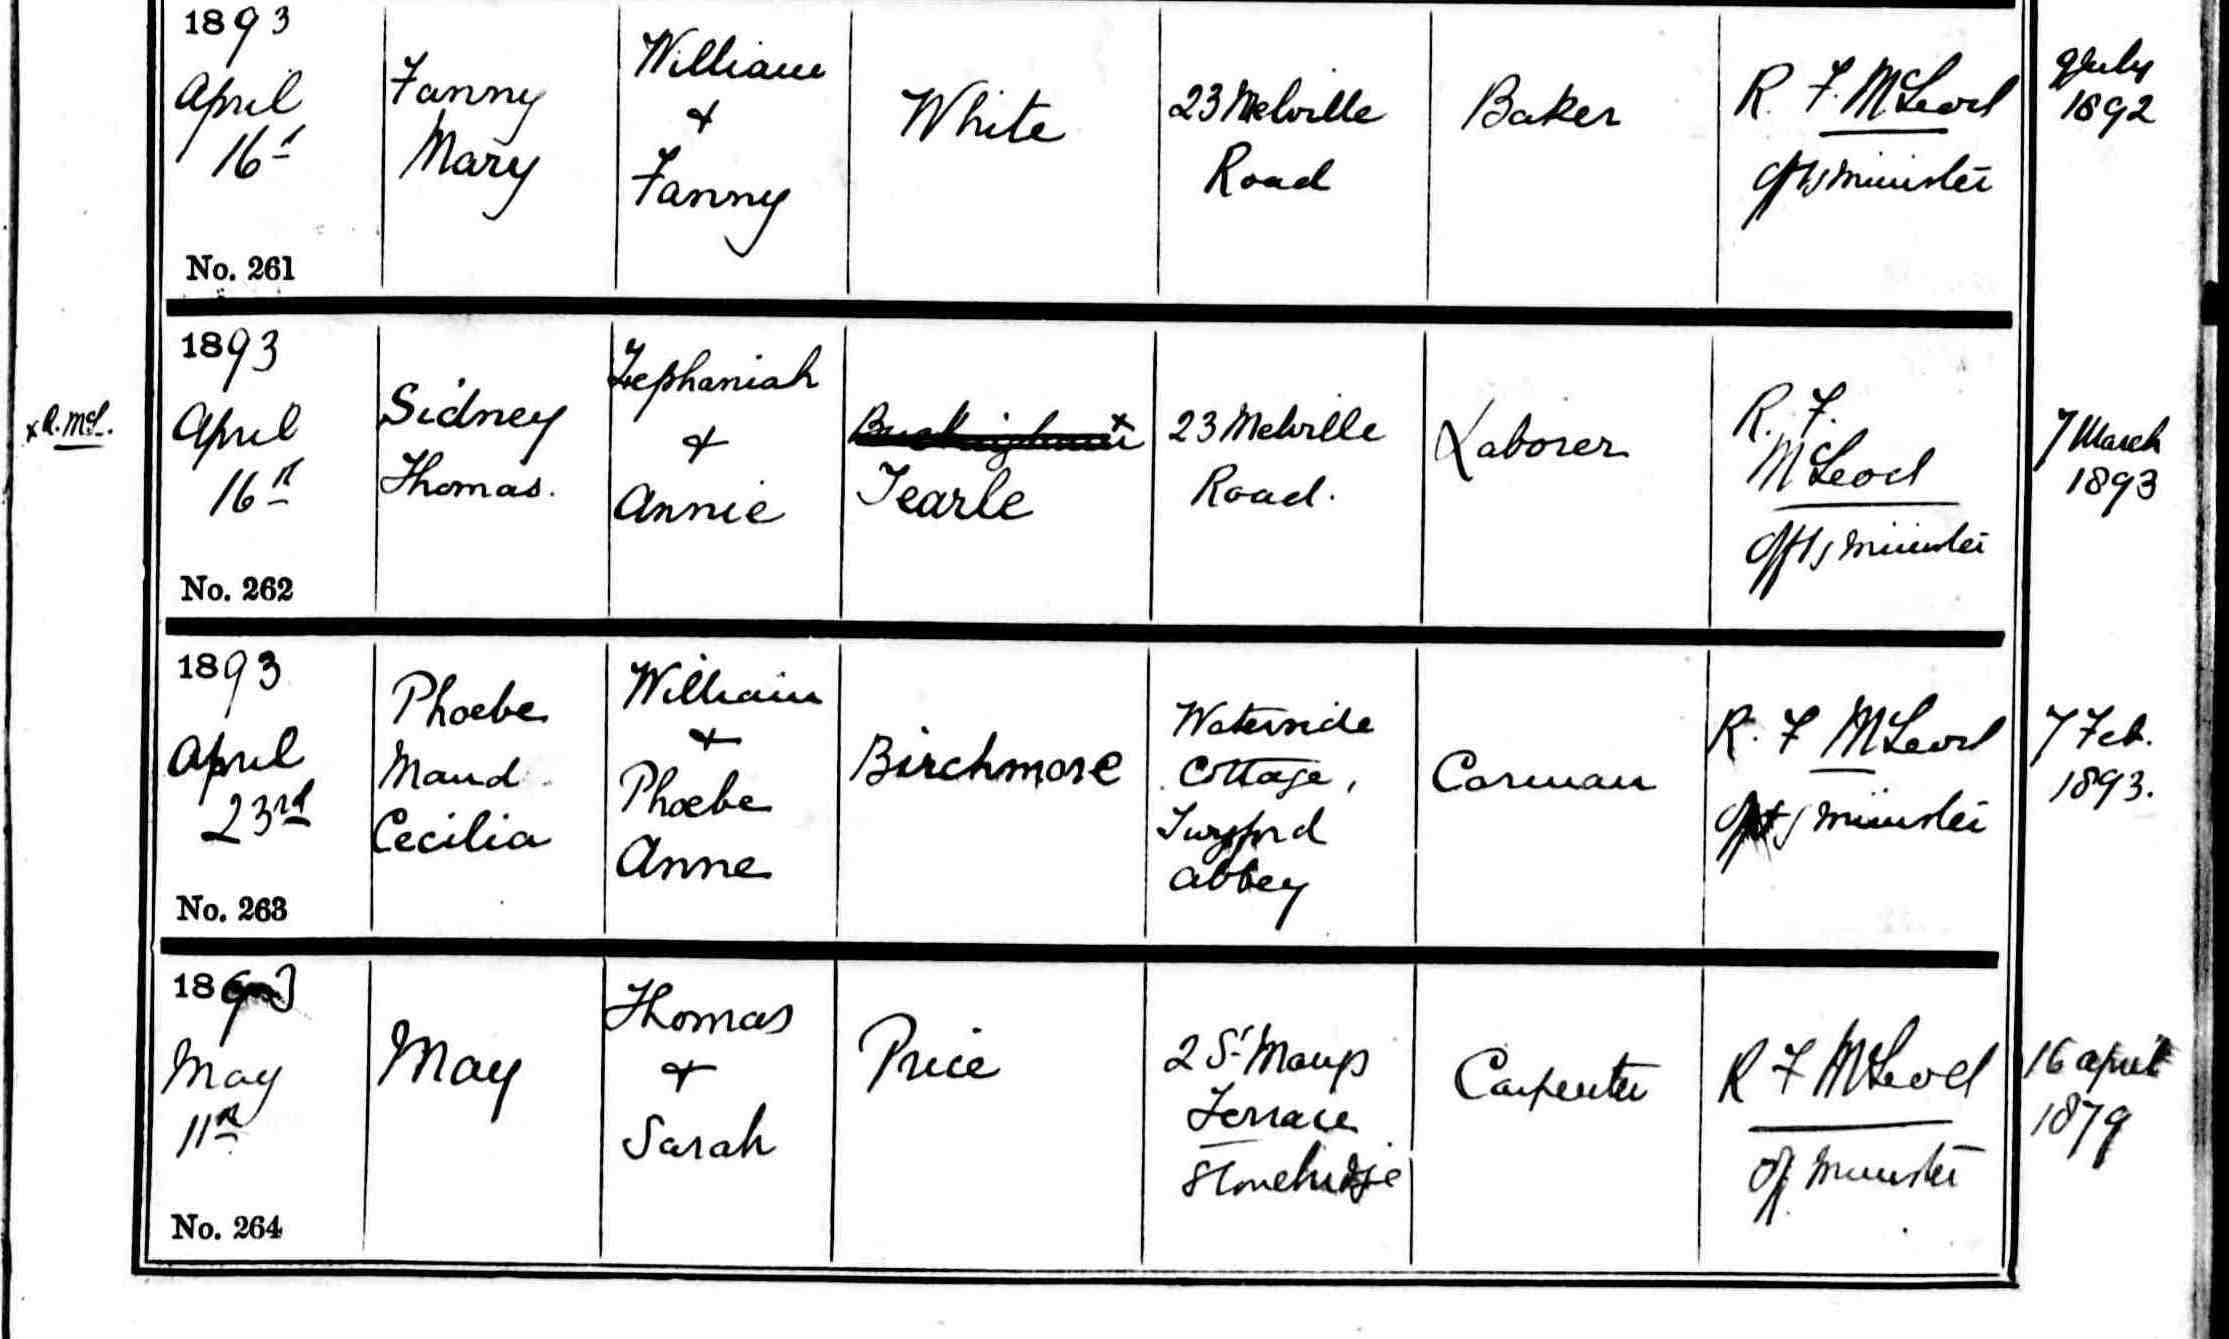 1893
April
16th
No. 261
Fanny
Mary
William
&
Fanny
White
23 Melville
Road
Baker
R. F. McLeod
Offg minister
July
1892
x R. McL.
1893
April
16th
No. 262
Sidney
Thomas.
Zephaniah
&
Annie
Buckingham x
Tearle
23 Melville
Road.
Laborer
R. F.
McLeod
Offg minister
7 March
1893
1893
April
23rd
No. 263
Phoebe
Maud
Cecilia
William
&
Phoebe
Anne
Birchmore
Waterside
Cottage,
Twyford
Abbey
Carman
R. F McLeod
Offg minister
7 Feb.
1893.
1893
May
11th
No. 264
May
Thomas
&
Sarah
Price
2 St
Terrace
Stonebridge
Carpenter
R F McLeod
Off minister
16 April
1879